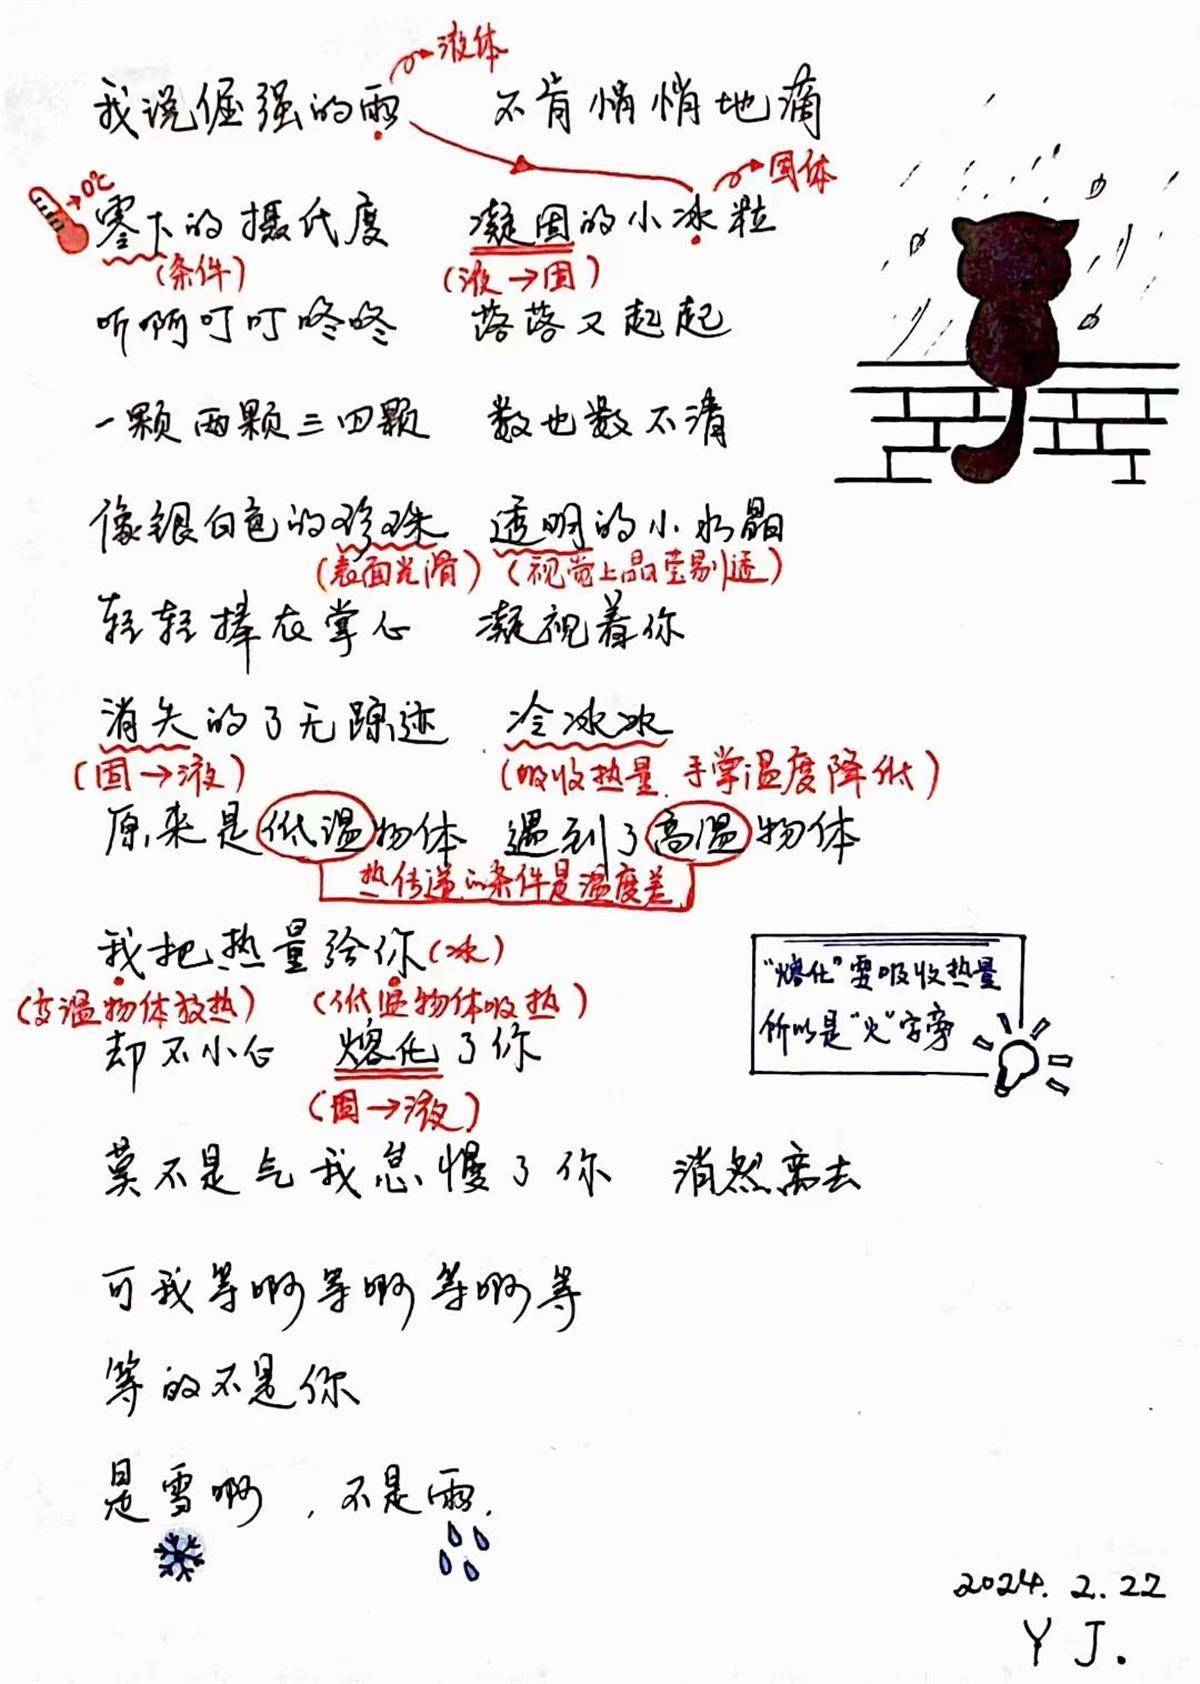 液体
我说倔强的雨 不肯悄悄地滴
固体
0℃
零下的摄氏度 凝固的小冰粒
(条件) (液→固)
听啊叮叮咚咚 落落又起起
一颗两颗三四颗 数也数不清
像银白色的珍珠 透明的小水晶
(表面光滑) (视觉上晶莹剔透)
轻轻捧在掌心 凝视着你
消失的了无踪迹 冷冰冰
(固→液) (吸收热量,手掌温度降低)
原来是低温物体 遇到了高温物体
热传递的条件是温度差
我把热量给你(冰)
(高温物体放热) (低温物体吸热)
却不小心 熔化了你
(固→液)
"熔化"需吸收热量
所以是"火"字旁
莫不是气我怠慢了你 消然离去
可我等啊等啊等啊等
等的不是你
是雪啊,不是雨.
2024.2.22
Y J.